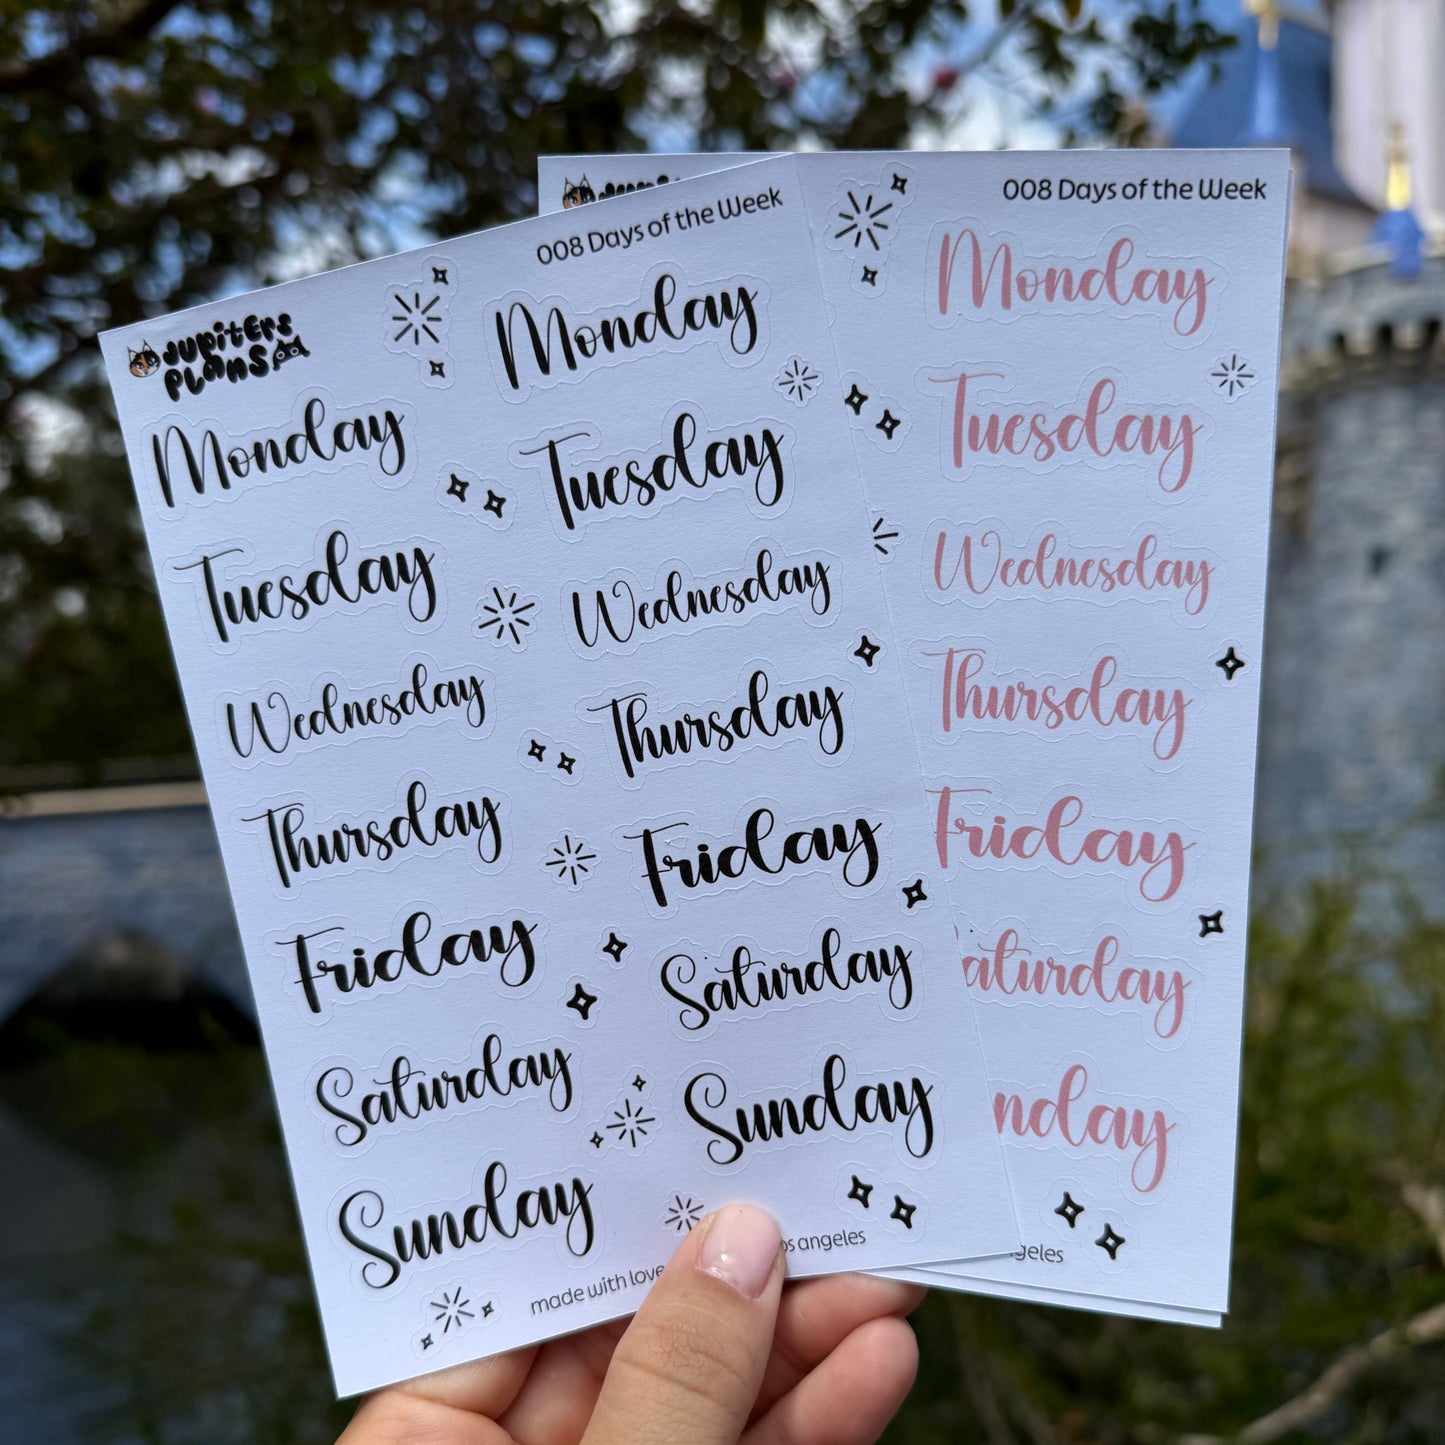 JUPITERS
PLANS
008 Days of the Week
Monday
Tuesday
Wednesday
Thursday
Friday
Saturday
Sunday
Monday
Tuesday
Wednesday
Thursday
Friday
Saturday
Sunday
made with love
os angeles
008 Days of the Week
Monday
Tuesday
Wednesday
Thursday
Friday
aturday
nday
geles